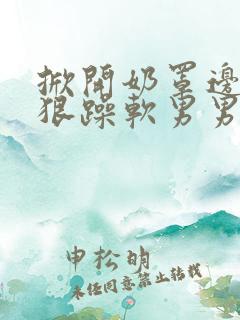 掀開奶罩邊
狠躁軟男男
申松明
未任同意禁止转载